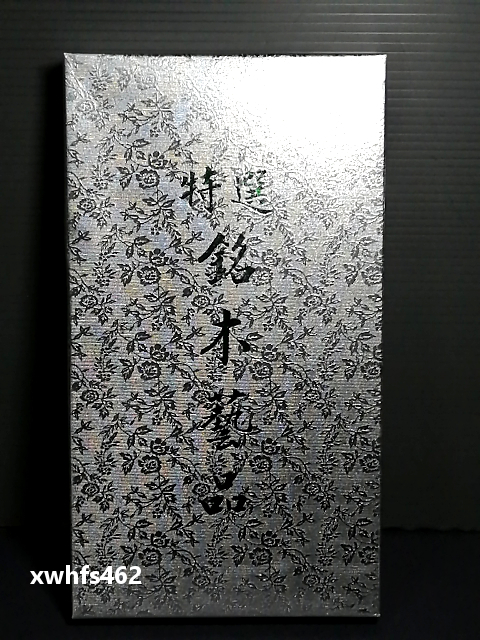 特選
銘木藝品
xwhfs462